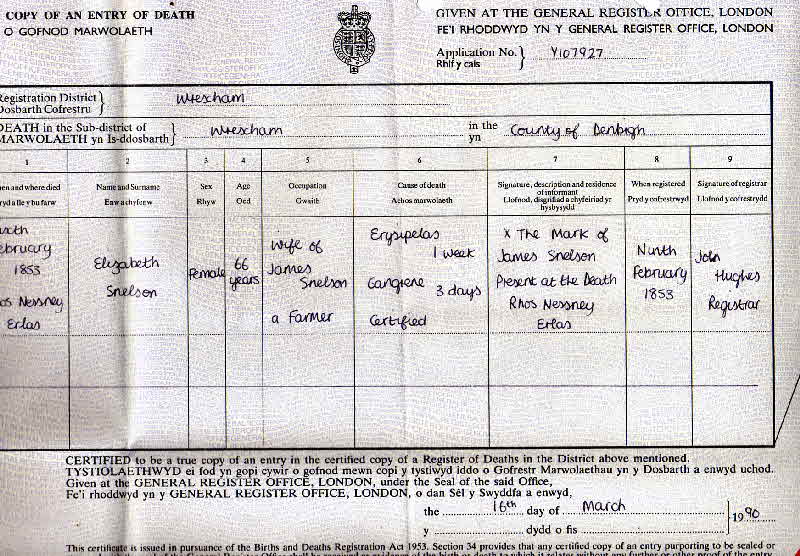 COPY OF AN ENTRY OF DEATH
O GOFNOD MARWOLAETH
GIVEN AT THE GENERAL REGISTER OFFICE, LONDON
FE'I RHODDWYD YN Y GENERAL REGISTER OFFICE, LONDON
Application No. Y107927
Rhif y cais
Registration District Wrexham
Dosbarth Cofrestru
DEATH in the Sub-district of Wrexham in the County of Denbigh
MARWOLAETH yn Is-ddosbarth yn
1 2 3 4 5 6 7 8 9
and where died Name and Surname Sex Age Occupation Cause of death Signature, description and residence of informant When registered Signature of registrar
Enw a chyfenw Rhyw Oed Gwaith Achos marwolaeth Llofnod, disgrifiad a chyfeiriad yr hysbysydd Pryd y cofrestrwyd Llofnod y cofrestrydd
February
1853
Nessney
Erlas
Elizabeth
Snelson
Female
66
years
Wife of
James
Snelson
a Farmer
Erysipelas
1 week
Gangrene
3 days
Certified
X The Mark of
James Snelson
Present at the Death
Rhos Nessney
Erlas
Ninth
February
1853
John
Hughes
Registrar
CERTIFIED to be a true copy of an entry in the certified copy of a Register of Deaths in the District above mentioned.
TYSTIOLAETHWYD ei fod yn gopi cywir o gofnod mewn copi y tystiwyd iddo o Gofrestr Marwolaethau yn y Dosbarth a enwyd uchod.
Given at the GENERAL REGISTER OFFICE, LONDON, under the Seal of the said Office,
Fe'i rhoddwyd yn y GENERAL REGISTER OFFICE, LONDON, o dan Sêl y Swyddfa a enwyd,
the 16th day of March 1990
y dydd o fis
This certificate is issued in pursuance of the Births and Deaths Registration Act 1953. Section 34 provides that any certified copy of an entry purporting to be sealed or